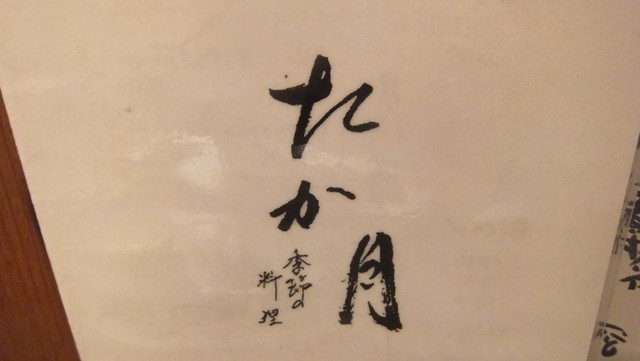 たか月
季節の
料理